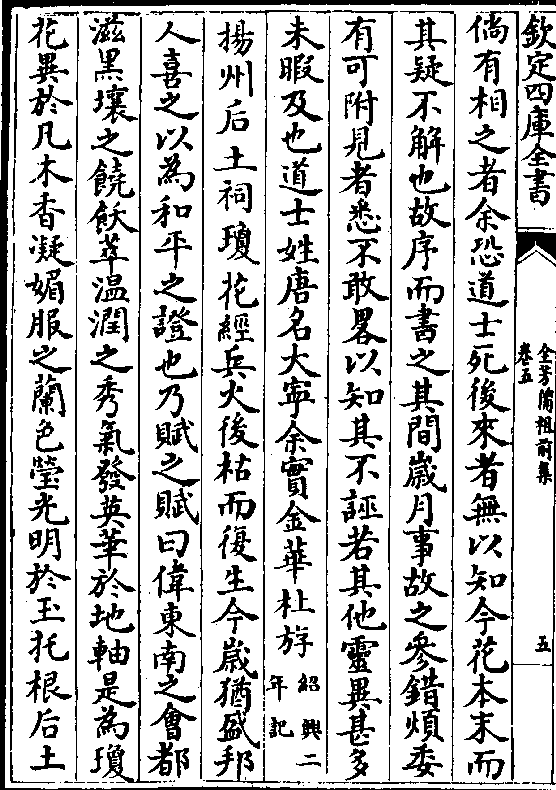 欽定四庫全書
全芳備祖前集
卷五
五
倘有相之者余恐道士死後來者無以知今花本末而
其疑不解也故序而書之其間歲月事故之參錯煩委
有可附見者悉不敢畧以知其不誣若其他靈異甚多
未暇及也道士姓唐名大寧余實金華杜斿紹興二年記
揚州后土祠瓊花經兵火後枯而復生今歲猶盛邦
人喜之以為和平之證也乃賦之賦曰偉東南之會都
滋黑壤之饒飫萃温潤之秀氣發英華於地軸是為瓊
花異於凡木香凝媚服之蘭色瑩光明於玉托根后土